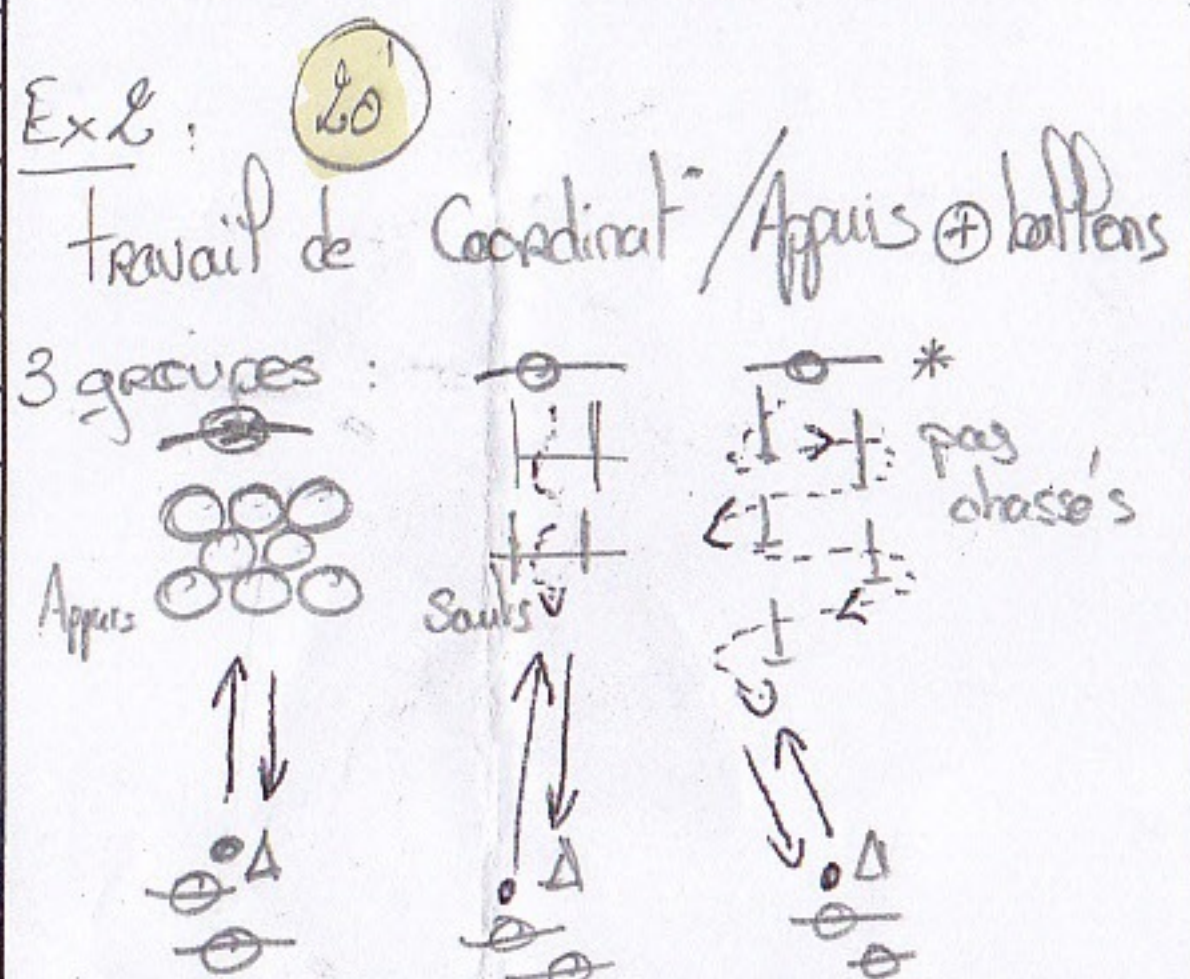 Ex 2 : 20'
travail de Coordinat° / Appuis ⊕ ballons
3 groupes :
*
pas
chassés
Appuis
Sauts